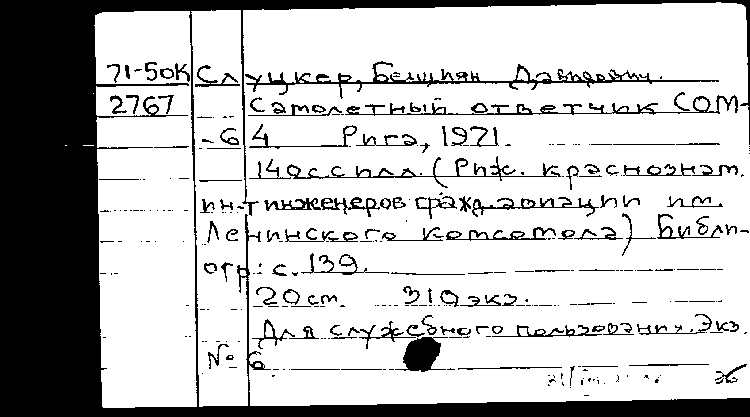 71-50К Слуцкер, Бенциан Давидович.
2767 Самолетный ответчик СОМ-
-64 Рига, 1971.
140с с илл. (Риж. краснознам.
ин-т инженеров гражд. авиации им.
Ленинского комсомола) Библи-
огр: с. 139.
20см. 310экз.
Для служебного пользования. Экз.
№ 6
36